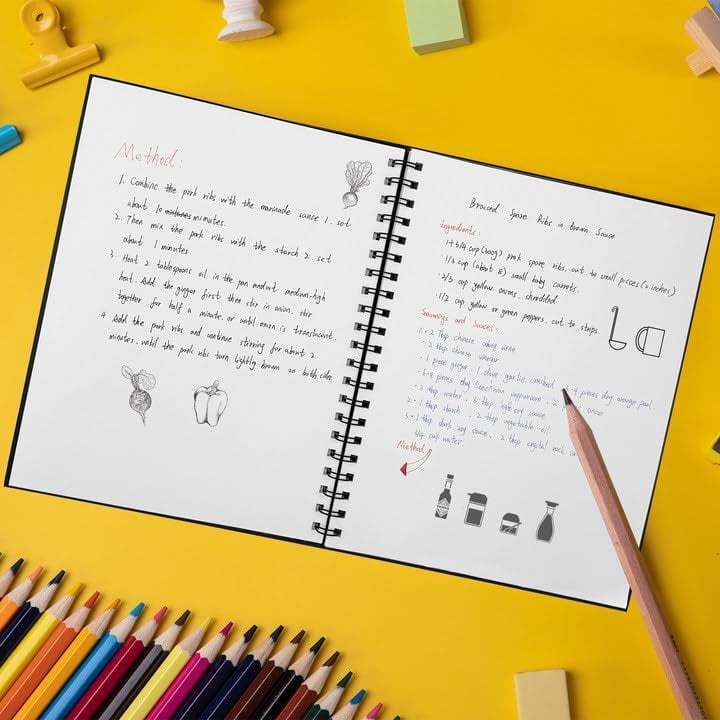 Method:
1. Combine the pork ribs with the marinade sauce 1. set
about 10 minutes.
2. Then mix the pork ribs with the starch 2. set
about 1 minutes
3. Heat 2 tablespoons oil in the pan medium-high
heat. Add the ginger first then stir in onion, stir
together for half a minute. or until onion is translucent.
4. Add the pork ribs and continue stirring for about 2
minutes. until the pork ribs turn lightly brown on both sides.
Braised Spare Ribs in Brown Sauce
Ingredients:
pork spare ribs, cut to small pieces (2 inches)
1/3 cup (about 8) small baby carrots.
2/3 cup yellow onions, shredded
1/2 cup yellow or green peppers, cut to strips.
Seasonings and Sauces:
1. 2 tbsp chinese cooking wine
2 tbsp chinese vinegar
1 piece ginger. 1 clove garlic crushed. 3-4 pieces dry orange peel.
5-6 pieces dry peppercorn. 2
2 tbsp water. 3 tbsp light soy sauce
2. 1 tbsp starch. 2 tbsp vegetable oil
3. 1 tbsp dark soy sauce. 2 tbsp crystal rock
3/4 cup water.
Method